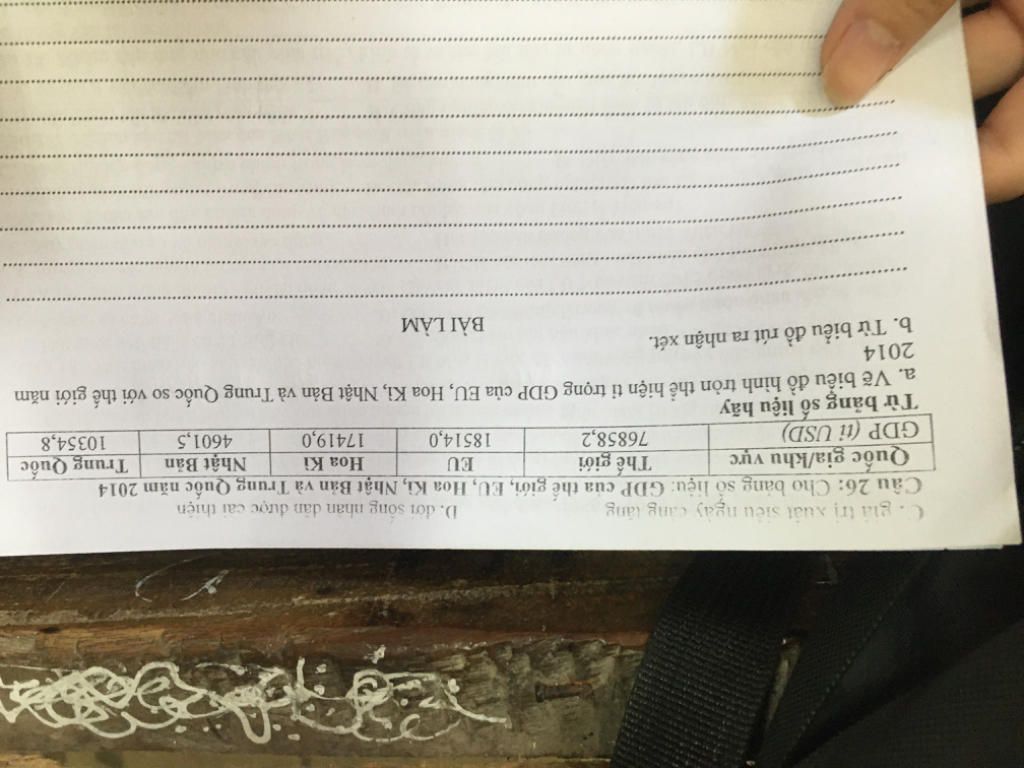 C. giá trị xuất siêu ngày càng tăng D. đời sống nhân dân được cải thiện
Câu 26: Cho bảng số liệu: GDP của thế giới, EU, Hoa Kì, Nhật Bản và Trung Quốc năm 2014
Quốc gia/khu vực Thế giới EU Hoa Kì Nhật Bản Trung Quốc
GDP (tỉ USD) 76858,2 18514,0 17419,0 4601,5 10354,8
Từ bảng số liệu hãy
a. Vẽ biểu đồ hình tròn thể hiện tỉ trọng GDP của EU, Hoa Kì, Nhật Bản và Trung Quốc so với thế giới năm
2014
b. Từ biểu đồ rút ra nhận xét.
BÀI LÀM